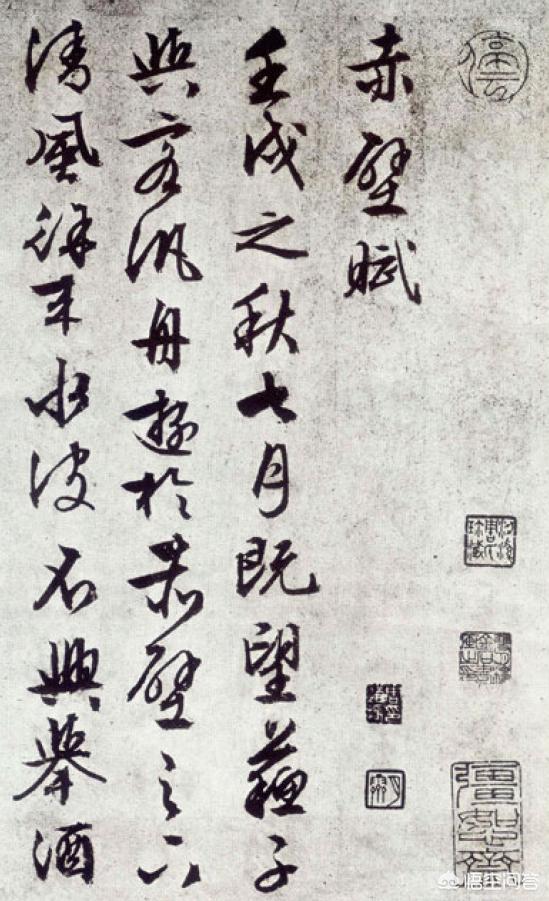 停雲
赤壁賦
壬戌之秋七月既望蘓子
與客汎舟遊於赤壁之下
清風徐來水波不興舉酒
悟空问答